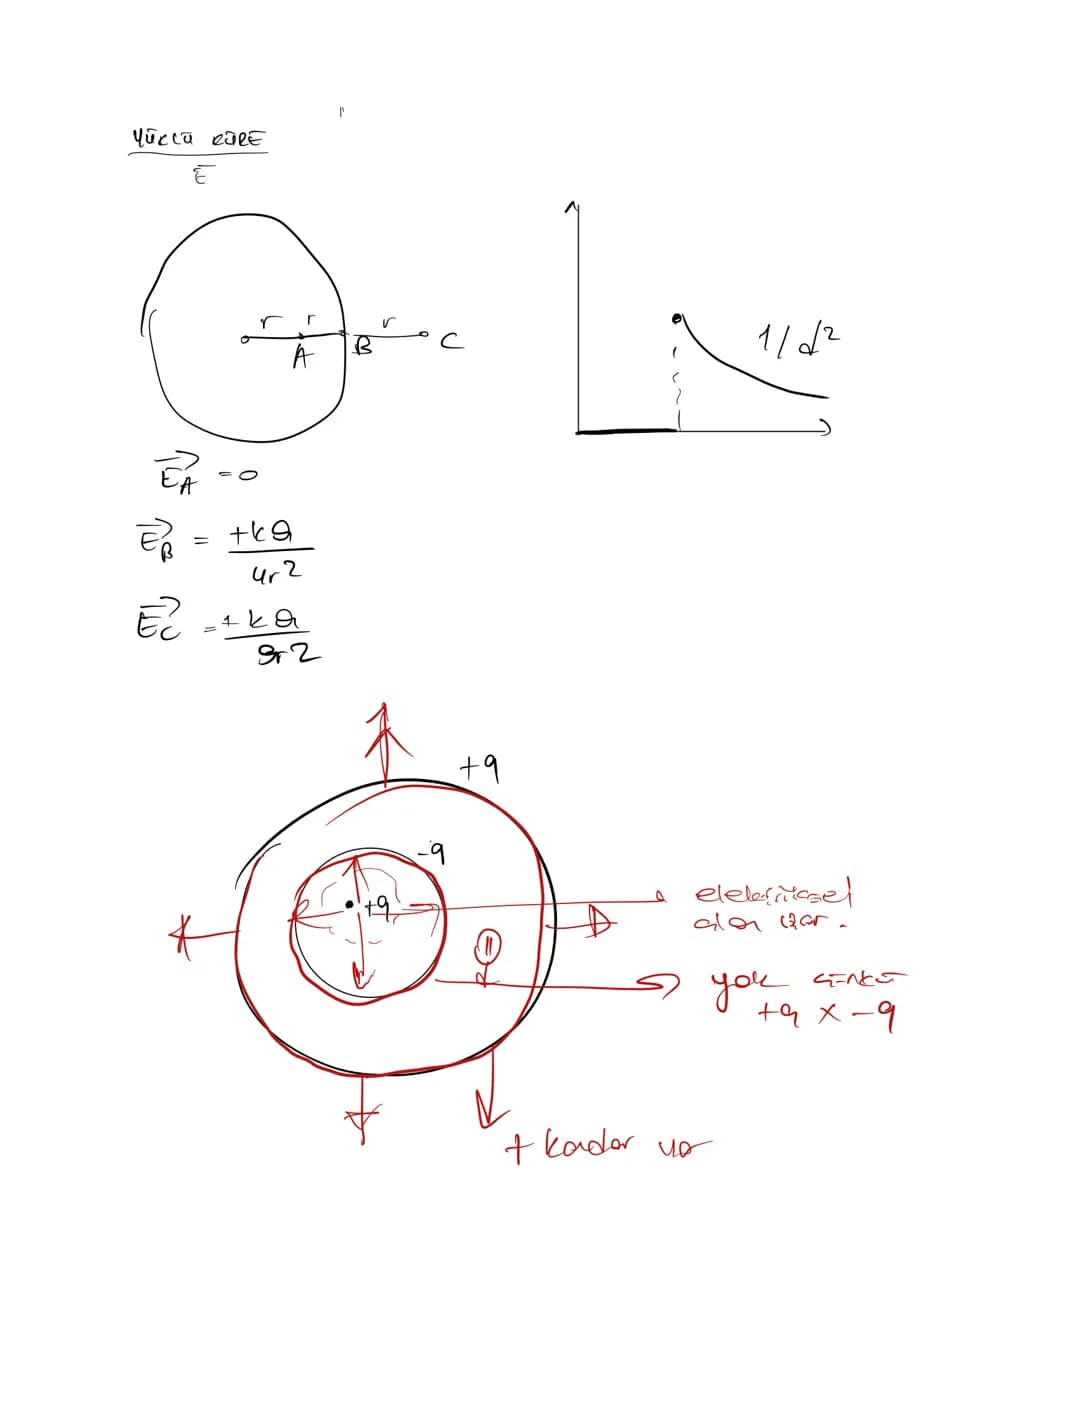 YÜKLÜ KÜRE
E
r r r
A B C
1/d²
E_A = 0
E_B = +kQ / 4r²
E_C = +kQ / 9r²
+q
-q
+q
elektriksel
alan var.
yok çünkü
+q x -q
+ kadar var